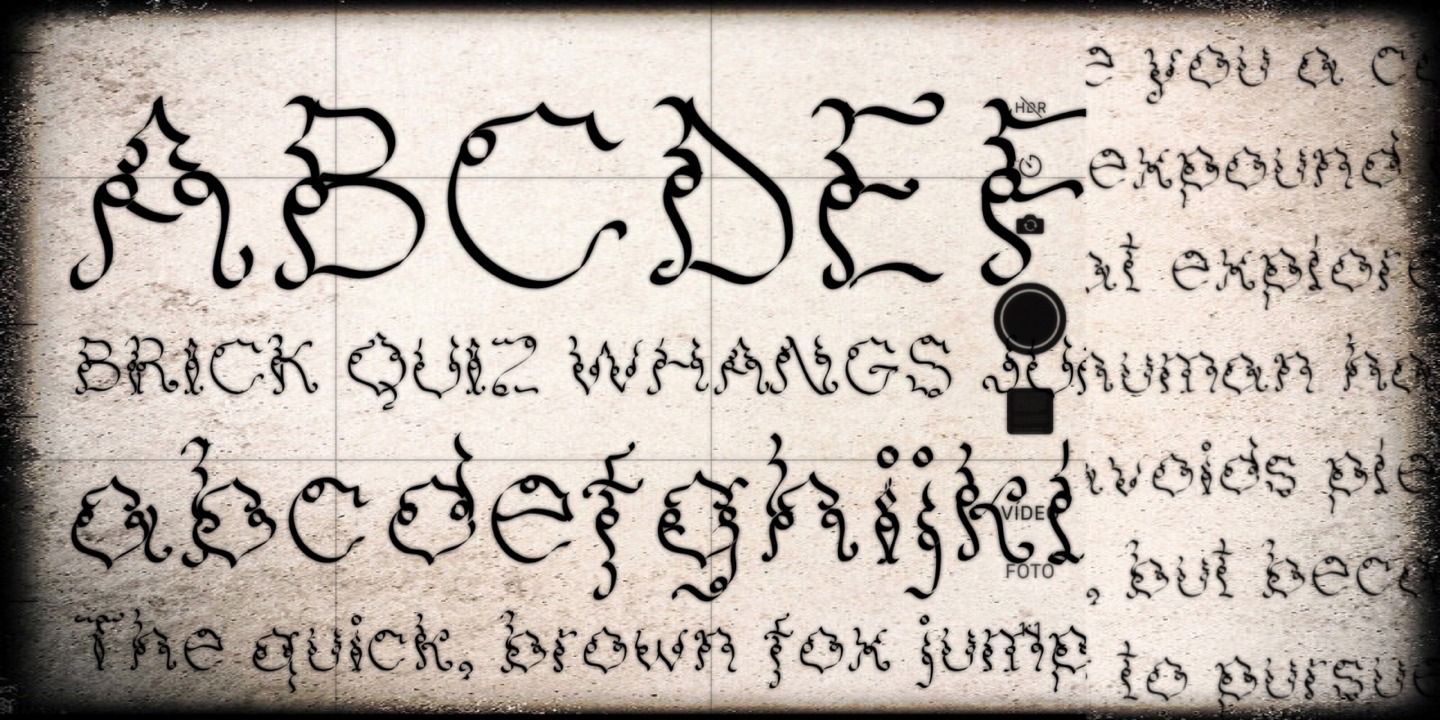 ABCDEF
BRICK QUIZ WHANGS JU
abcdefghijkl
The quick, brown fox jump
HDR
VIDE
FOTO
x1
e you a c
expound
at explore
human ha
voids ple
, but beca
to pursue